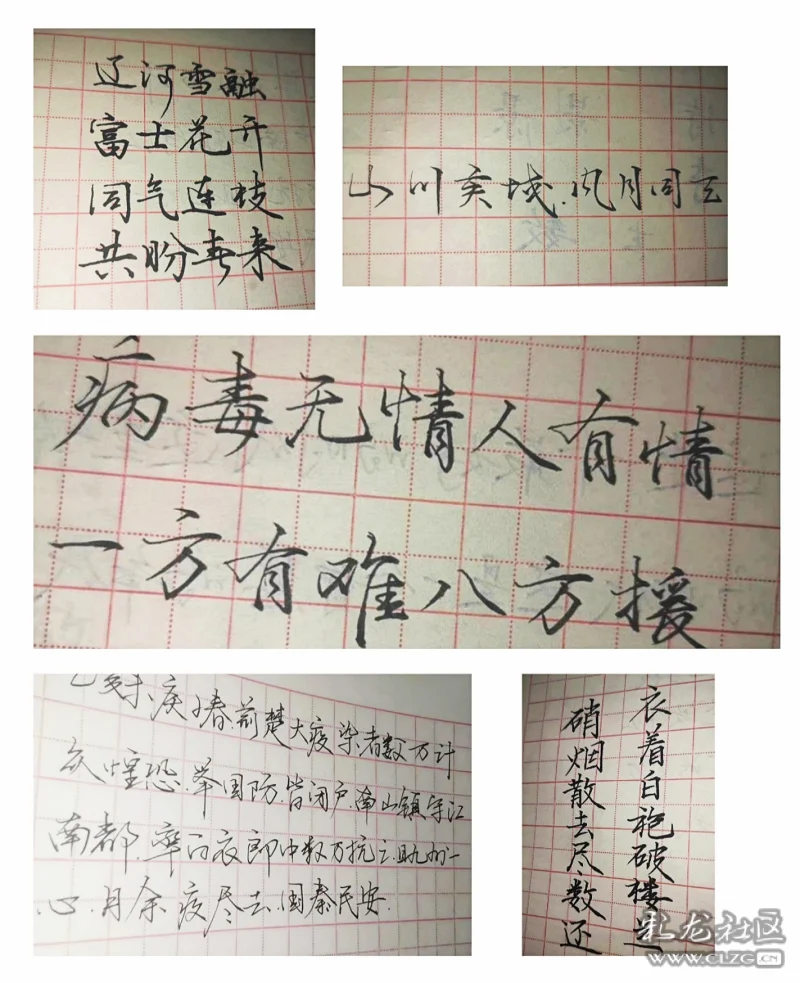 辽河雪融
富士花开
同气连枝
共盼春来
山川异域.风月同天
病毒无情人有情
一方有难八方援
己亥末庚子春.荆楚大疫染者数万计
众惶恐.举国防.皆闭户.南山镇守江
南都.率白衣郎中数万抗之.且九州一
心.月余.疫尽去.国泰民安.
衣着白袍破楼
硝烟散去尽数还
札龙社区
WWW.CLZG.CN